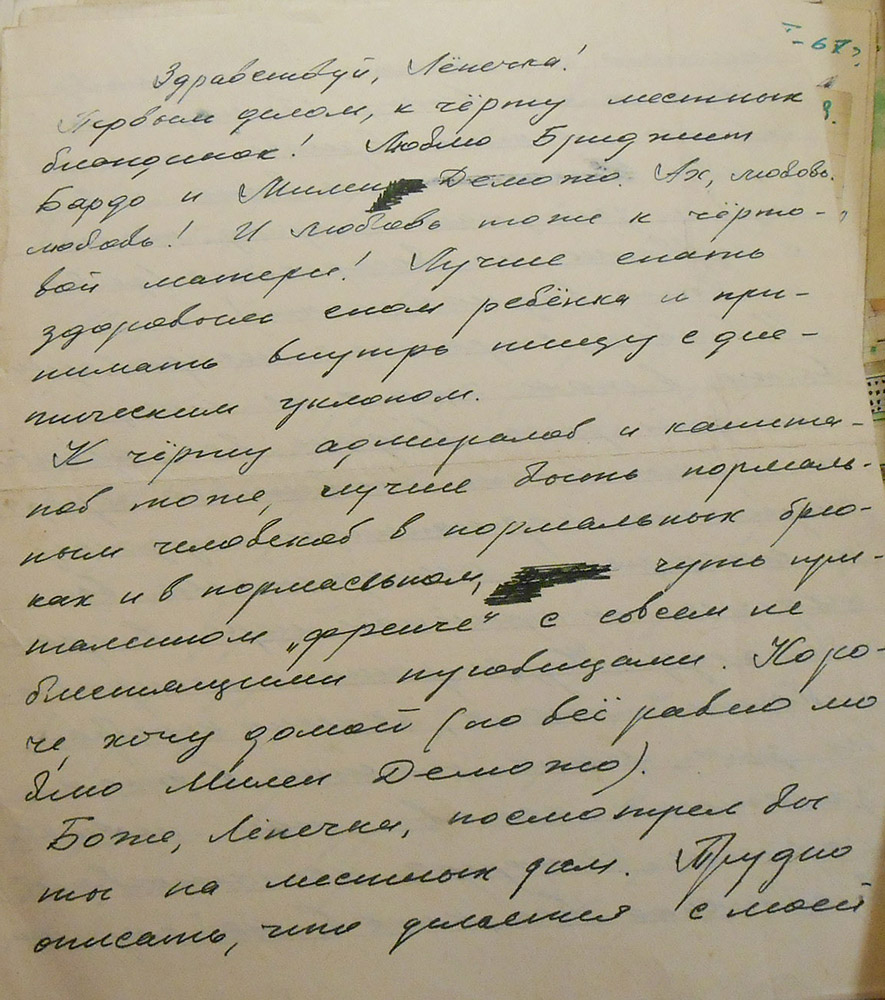 Здравствуй, Лёнечка!
Первым делом, к чёрту местных
блондинок! Люблю Бриджит
Бардо и Милен Деможо. Ах, любовь,
любовь! И любовь тоже к чёрто-
вой матери! Лучше спать
здоровым сном ребёнка и при-
нимать внутрь пищу с дие-
тическим уклоном.
К чёрту адмиралов и капита-
нов тоже, лучше быть нормаль-
ным человеком в нормальных брю-
ках и в нормальном, чуть при-
таленном „френче“ с совсем не
блестящими пуговицами. Коро-
че, хочу домой (но всё равно лю
блю Милен Деможо).
Боже, Лёнечка, посмотрел бы
ты на местных дам. Трудно
описать, что делается с моей